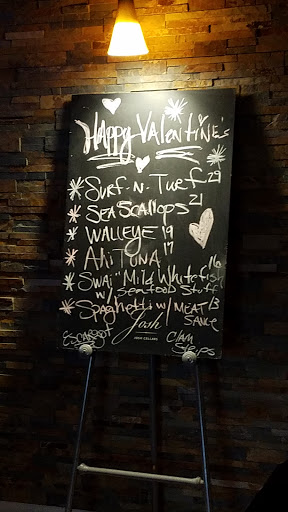 Happy Valentine's
Surf-n-Turf 29
Sea Scallops 21
Walleye 19
Ahi Tuna 17
Swai "Mild Whitefish 16
w/ Seafood Stuff
Spaghetti w/ Meat 13
Sauce
Josh
JOSH CELLARS
Escargot
Clam
Strips